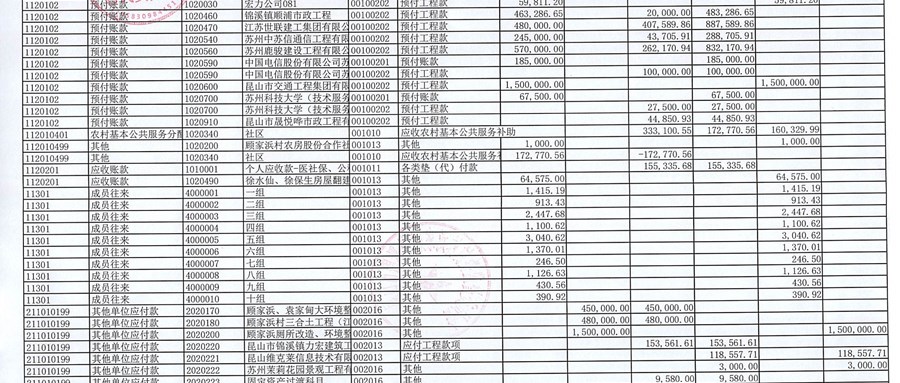 1120102 预付账款 1020030 宏力公司081 00100202 预付工程款 59,811.20 59,811.20
1120102 预付账款 1020460 锦溪镇顺浦市政工程 00100202 预付工程款 463,286.65 20,000.00 483,286.65
1120102 预付账款 1020470 江苏世联建工集团有限公 00100202 预付工程款 480,000.00 407,589.86 887,589.86
1120102 预付账款 1020540 苏州中苏信通信工程有限 00100202 预付工程款 245,000.00 43,705.91 288,705.91
1120102 预付账款 1020560 苏州鹿骏建设工程有限公 00100202 预付工程款 570,000.00 262,170.94 832,170.94
1120102 预付账款 1020590 中国电信股份有限公司苏 00100201 预付账款 185,000.00 185,000.00
1120102 预付账款 1020590 中国电信股份有限公司苏 00100202 预付工程款 100,000.00 100,000.00
1120102 预付账款 1020600 昆山市交通工程集团有限 00100202 预付工程款 1,500,000.00 1,500,000.00
1120102 预付账款 1020700 苏州科技大学(技术服务 00100201 预付账款 67,500.00 67,500.00
1120102 预付账款 1020700 苏州科技大学(技术服务 00100202 预付工程款 27,500.00 27,500.00
1120102 预付账款 1020910 昆山市晟悦晔市政工程有 00100202 预付工程款 44,850.93 44,850.93
112010401 农村基本公共服务分 1020340 社区 001010 应收农村基本公共服务补助 333,100.55 172,770.56 160,329.99
112010499 其他 1020200 顾家浜村农房股份合作社 001013 其他 1,000.00 1,000.00
112010499 其他 1020340 社区 001010 应收农村基本公共服务 172,770.56 -172,770.56
1120201 应收账款 1010001 个人应收款-医社保、公 001011 各类垫(代)付款 155,335.68 155,335.68
1120201 应收账款 1020490 徐水仙、徐保生房屋翻建 001013 其他 64,575.00 64,575.00
11301 成员往来 4000001 一组 001013 其他 1,415.19 1,415.19
11301 成员往来 4000002 二组 001013 其他 913.43 913.43
11301 成员往来 4000003 三组 001013 其他 2,447.68 2,447.68
11301 成员往来 4000004 四组 001013 其他 1,100.62 1,100.62
11301 成员往来 4000005 五组 001013 其他 3,040.62 3,040.62
11301 成员往来 4000006 六组 001013 其他 1,370.01 1,370.01
11301 成员往来 4000007 七组 001013 其他 246.50 246.50
11301 成员往来 4000008 八组 001013 其他 1,126.63 1,126.63
11301 成员往来 4000009 九组 001013 其他 430.56 430.56
11301 成员往来 4000010 十组 001013 其他 390.92 390.92
211010199 其他单位应付款 2020170 顾家浜、袁家甸大环境整 002016 其他 450,000.00 450,000.00
211010199 其他单位应付款 2020180 顾家浜村三合土工程(江 002016 其他 480,000.00 480,000.00
211010199 其他单位应付款 2020200 顾家浜厕所改造、环境整 002016 其他 1,500,000.00 1,500,000.00
211010199 其他单位应付款 2020220 昆山市锦溪镇力宏建筑工 002013 应付工程款项 153,561.61 153,561.61
211010199 其他单位应付款 2020221 昆山维克莱信息技术有限 002013 应付工程款项 118,557.71 118,557.71
211010199 其他单位应付款 2020222 苏州茉莉花园景观工程有 002016 其他 3,000.00 3,000.00
211010199 其他单位应付款 2020223 固定资产过渡科目 002016 其他 9,580.00 9,580.00